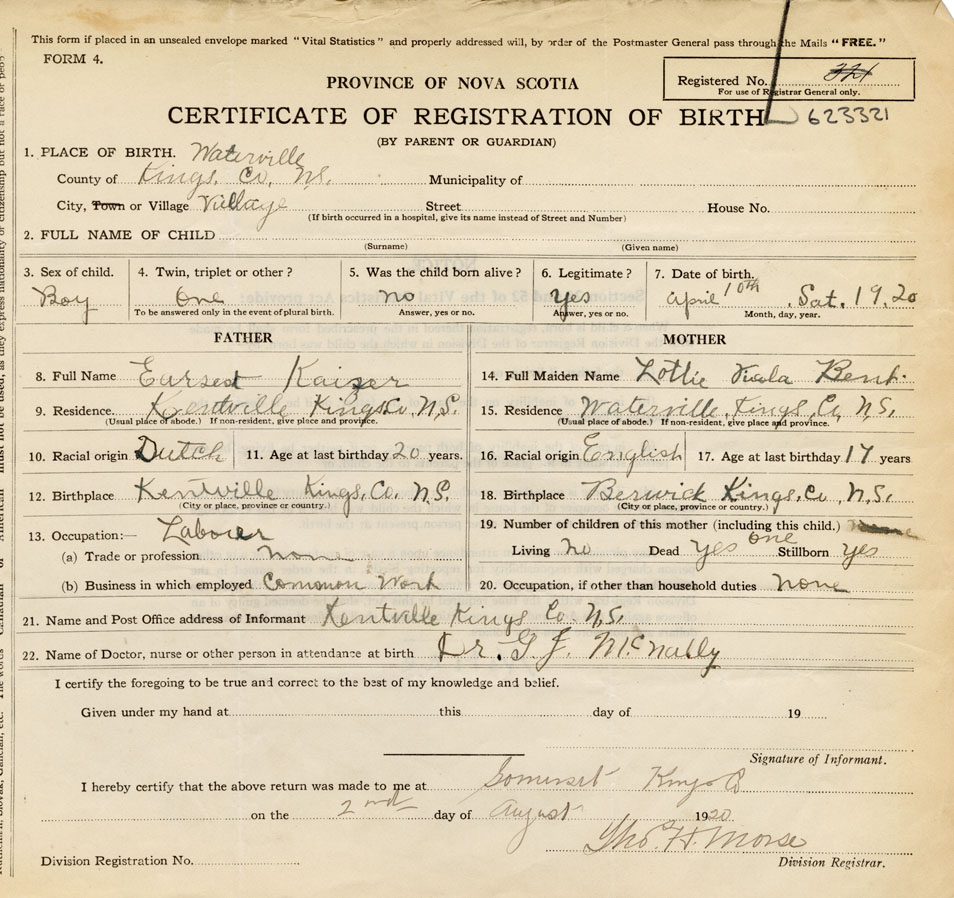 This form if placed in an unsealed envelope marked "Vital Statistics" and properly addressed will, by order of the Postmaster General pass through the Mails "FREE."
FORM 4.
Registered No. 321
For use of Registrar General only.
PROVINCE OF NOVA SCOTIA
CERTIFICATE OF REGISTRATION OF BIRTH 623321
(BY PARENT OR GUARDIAN)
1. PLACE OF BIRTH. Waterville
County of Kings. Co. N.S. Municipality of
City, Town or Village Village Street House No.
(If birth occurred in a hospital, give its name instead of Street and Number)
2. FULL NAME OF CHILD
(Surname) (Given name)
3. Sex of child. 4. Twin, triplet or other? 5. Was the child born alive? 6. Legitimate? 7. Date of birth.
Boy One no yes april 10th Sat. 1920
To be answered only in the event of plural birth. Answer, yes or no. Answer, yes or no. Month, day, year.
FATHER MOTHER
8. Full Name Earsest Kaizer 14. Full Maiden Name Lottie Viola Bent
9. Residence. Kentville Kings Co, N.S. 15. Residence Waterville, Kings, Co, N.S.
(Usual place of abode.) If non-resident, give place and province. (Usual place of abode.) If non-resident, give place and province.
10. Racial origin Dutch 11. Age at last birthday 20 years. 16. Racial origin English 17. Age at last birthday 17 years
12. Birthplace Kentville Kings, Co. N.S. 18. Birthplace Berwick Kings, Co, N.S.
(City or place, province or country.) (City or place, province or country.)
13. Occupation:— Labouer 19. Number of children of this mother (including this child.)
(a) Trade or profession none Living no Dead yes one Stillborn yes
(b) Business in which employed Comonon Work 20. Occupation, if other than household duties none
21. Name and Post Office address of Informant Kentville Kings Co. N.S.
22. Name of Doctor, nurse or other person in attendance at birth Dr. G. J. McNally
I certify the foregoing to be true and correct to the best of my knowledge and belief.
Given under my hand at this day of 19
Signature of Informant.
I hereby certify that the above return was made to me at Somerset Kings Co
on the 2nd day of August 1920.
Tho. H. Morse
Division Registration No. Division Registrar.